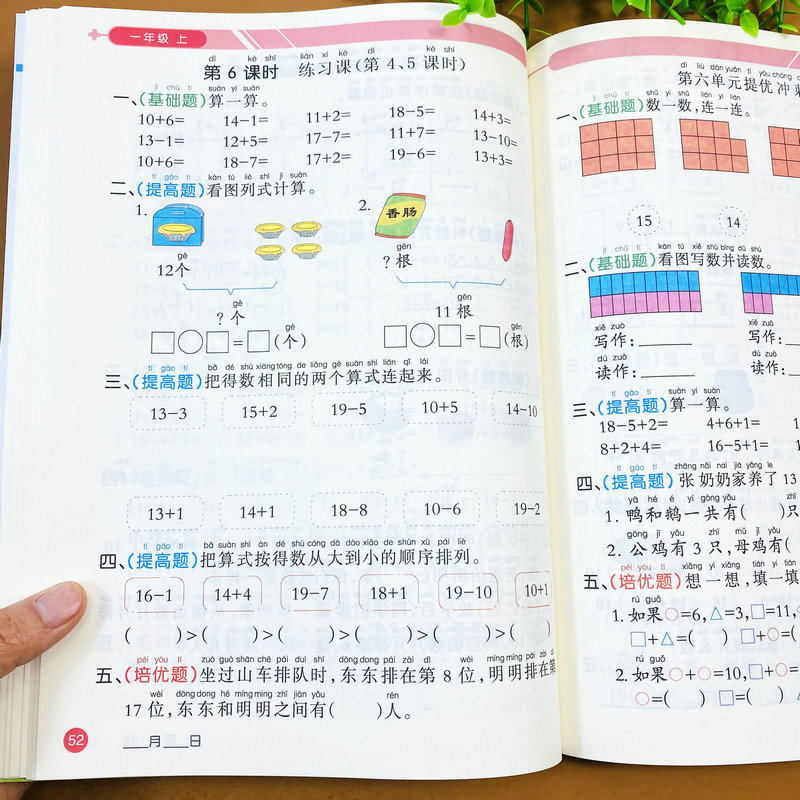 一年级 上
dì kè shí liàn xí kè dì kè shí
第 6 课时 练习课(第 4、5 课时)
jī chǔ tí suàn yi suàn
一、(基础题)算一算。
10+6= 14−1= 11+2= 18−5= 14+3=
13−1= 12+5= 17−7= 11+7= 13−10=
10+6= 18−7= 17+2= 19−6= 13+3=
tí gāo tí kàn tú liè shì jì suàn
二、(提高题)看图列式计算。
1. 2.
香肠
gè gēn
12个 ?根
gè gēn
?个 11根
gè gēn
□○□=□(个) □○□=□(根)
tí gāo tí bǎ dé shù xiāng tóng de liǎng gè suàn shì lián qǐ lái
三、(提高题)把得数相同的两个算式连起来。
13−3 15+2 19−5 10+5 14−10
13+1 14+1 18−8 10−6 19−2
tí gāo tí bǎ suàn shì àn dé shù cóng dà dào xiǎo de shùn xù pái liè
四、(提高题)把算式按得数从大到小的顺序排列。
16−1 14+4 19−7 18+1 19−10 10+1
( )>( )>( )>( )>( )>( )
péi yōu tí zuò guò shān chē pái duì shí dōng dong pái zài dì wèi míng míng pái zài dì
五、(培优题)坐过山车排队时,东东排在第 8 位,明明排在第
wèi dōng dong hé míng míng zhī jiān yǒu rén
17 位,东东和明明之间有( )人。
52 月 日
dì liù dān yuán tí yōu chōng
第六单元提优冲刺
jī chǔ tí shǔ yi shǔ lián yi lián
一、(基础题)数一数,连一连。
15 14
jī chǔ tí kàn tú xiě shù bìng dú shù
二、(基础题)看图写数并读数。
xiě zuò xiě zuò
写作: 写作:
dú zuò dú zuò
读作: 读作:
tí gāo tí suàn yi suàn
三、(提高题)算一算。
18−5+2= 4+6+1=
8+2+4= 16−5+1=
tí gāo tí zhāng nǎi nai jiā yǎng le
四、(提高题)张奶奶家养了 13
yā hé é yí gòng yǒu zhī
1. 鸭和鹅一共有( )只
gōng jī yǒu zhī mǔ jī yǒu
2. 公鸡有 3 只,母鸡有(
péi yōu tí xiǎng yi xiǎng tián yi tián
五、(培优题)想一想,填一填
rú guǒ
1. 如果○=6,△=3,□=11,
□+△=( ) □+○=(
rú guǒ
2. 如果○+○=10,□+○=
○=( ) □=(